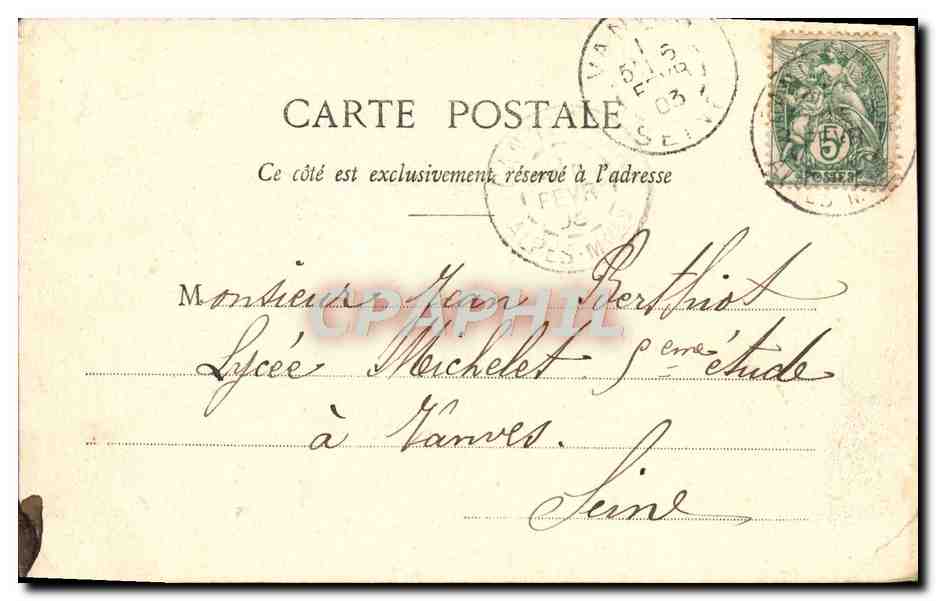 CARTE POSTALE
Ce côté est exclusivement réservé à l'adresse
Monsieur Jean Berthiot
Lycée Michelet 5eme étude
à Vanves.
Seine
VANVES
5
FEVR
03
SEINE
FEVR
ALPES-M
5
POSTES
CPAPHIL